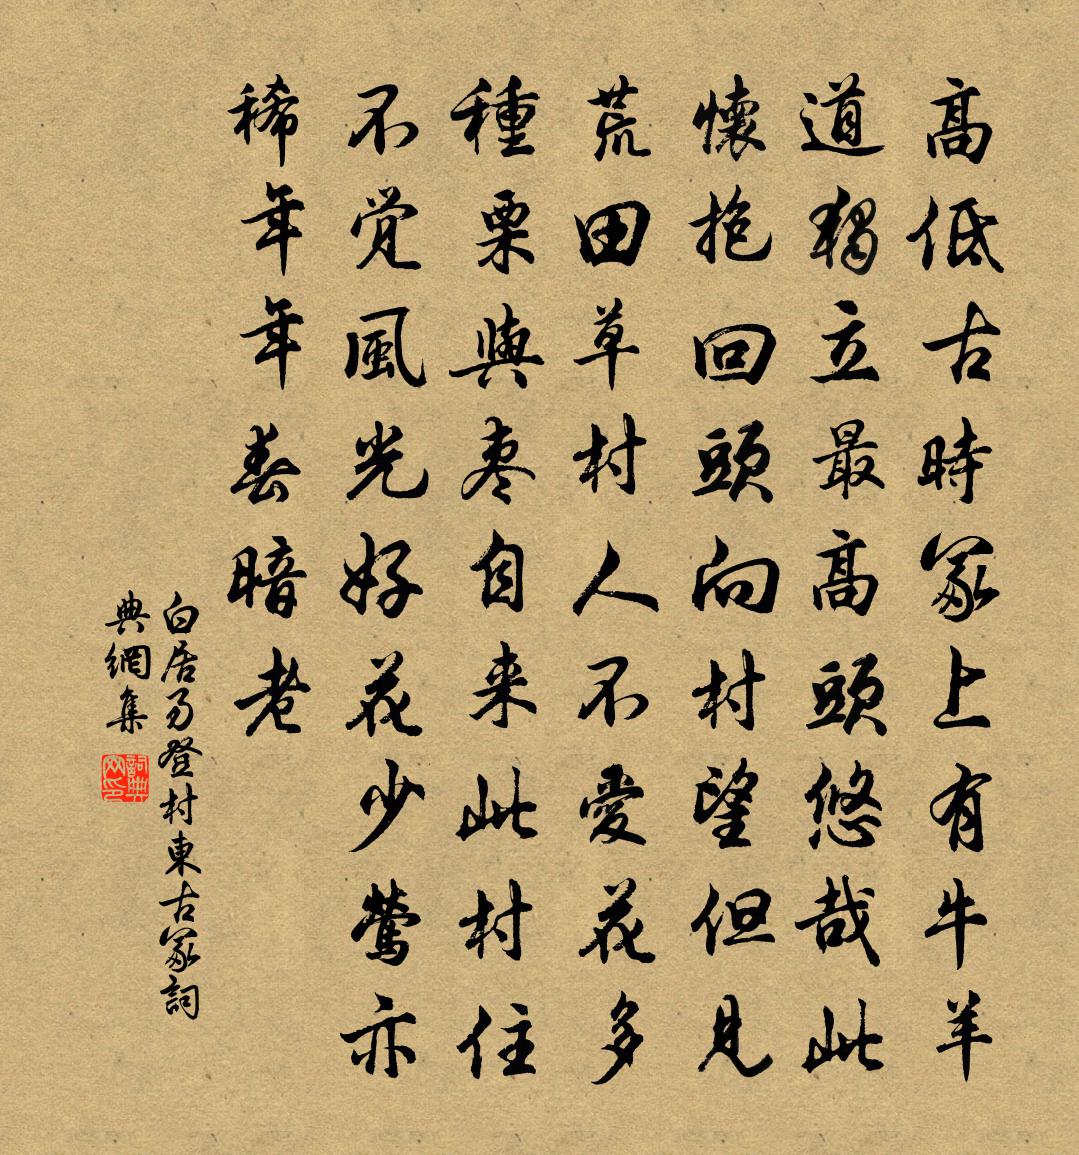 高低古時冢上有牛羊
道獨立最高頭悠哉此
懷抱回頭向村望但見
荒田草村人不愛花多
種栗與棗自来此村住
不覚風光好花少鶯亦
稀年年春暗老
白居易登村東古冢詞
典網集
詞典网印